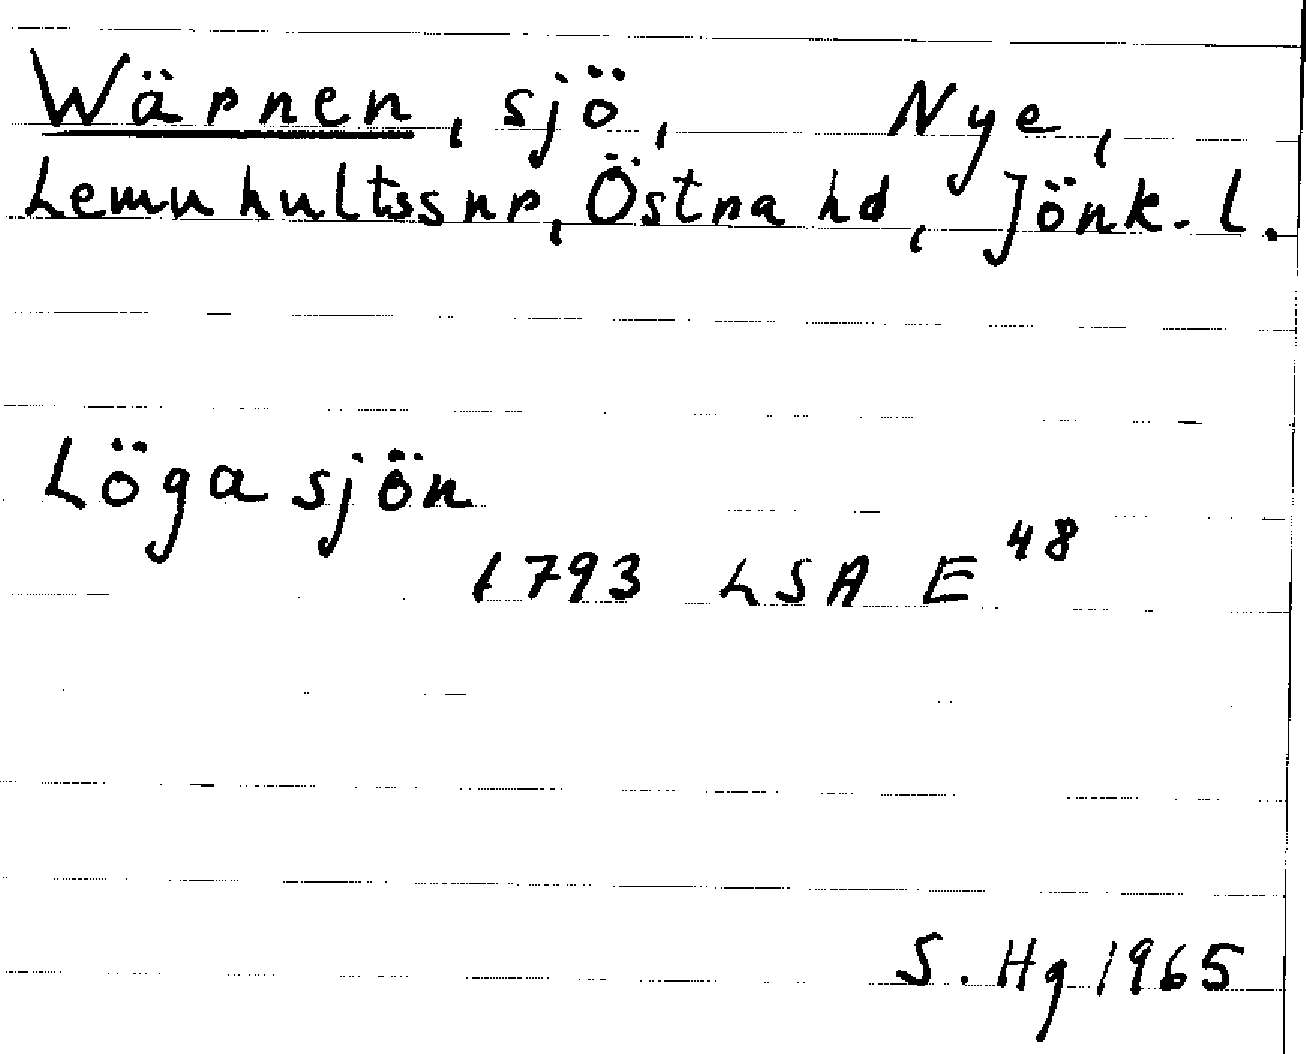 Wärnen, sjö, Nye,
Lemnhultssnr, Östra hd, Jönk. l.
Löga sjön
1793 LSA E 48
S. Hg 1965